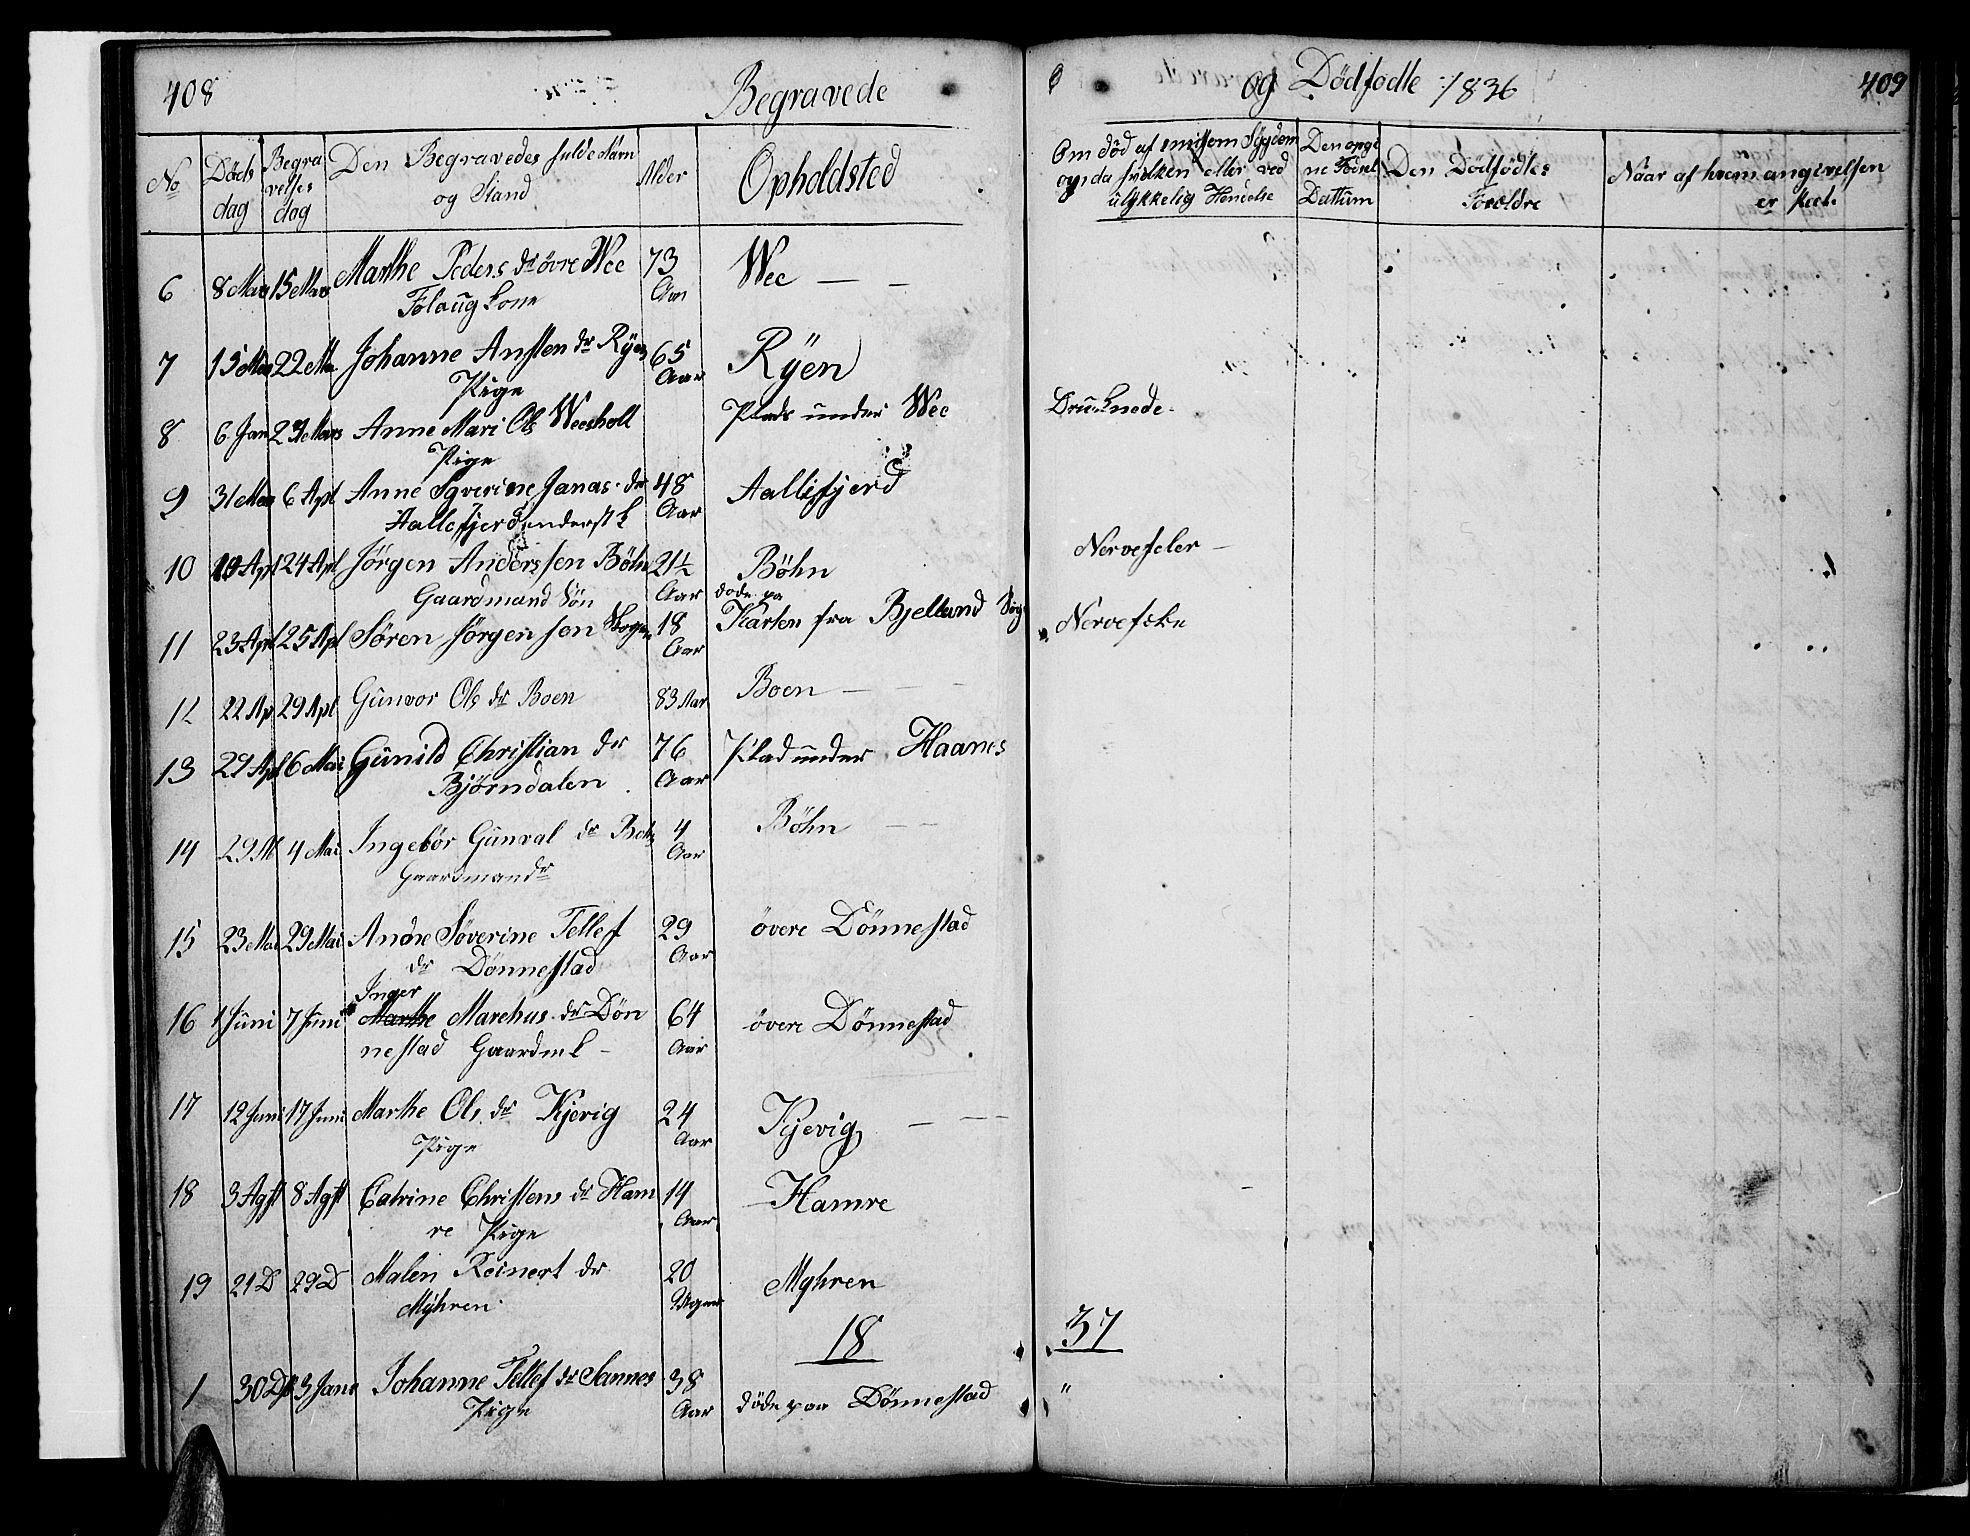 408
Begravede
og Dödfödte 1836
409
No Döds dag Begra velses dag Den Begravedes fulde Navn og Stand Alder Opholdsted
Om död af smitsom Sygdom og da hvilken eller ved ulykkelig Hendelse
Den opgi ne Födsel Dattum
Den Dödfödtes Forældre
Naar af hvem angivelsen er skeet.
6 8 Mars 15 Mars Marthe Peders dr övre Wee 73 Wee
Folaug kone Aar
7 15 Mars 22 Mars Johanne Ansten dr Ryen 65 Ryen
Pige Aar
8 6 Jan 23 Mars Anne Mari Ols Weesholt Plads under Wee Druknede.
Pige
9 31 Mars 6 Apl Anne Syverine Janas dr 48 Aallefjerd
Aallefjerd Aar
10 19 Apl 24 Apl Jörgen Anderssen Böhn 21½ Böhn Nervefeber
Gaardmand Sön Aar döde pa
11 23 Apl 25 Apl Sören Jörgensen 18 Karten fra Bjelland Sog
Aar
12 22 Ap 29 Apl Günvor Ols dr Boen 83 Aar Boen
13 29 Apl 6 Mai Günild Christian dr 76 Plad under Haanes
Björndalen Aar
14 29 4 Mai Ingebör Günval dr Böhn 4 Böhn
Gaardmandr Aar
15 23 Mai 29 Mai Andre Söverine Tellef 29 övere Dönnestad
dr Dönnestad Aar
Inger
16 1 Jüni 7 Jüni Marthe Marehus dr Dön 64 övere Dönnestad
nestad Gaardm k Aar
17 12 Juni 17 Juni Marthe Ols dr Kjevig 24 Kjevig
Pige Aar
18 3 Agst 8 Agst Catrine Christens dr Ham 14 Hamre
re Pige Aar
19 21 D 29 D Malen Reinert dr 20 Myhren
Myhren Uger
18 37
1 30 D 3 Janr Johanne Tellef dr Sannes 38 döde paa Dönnestad "
Pige Aar